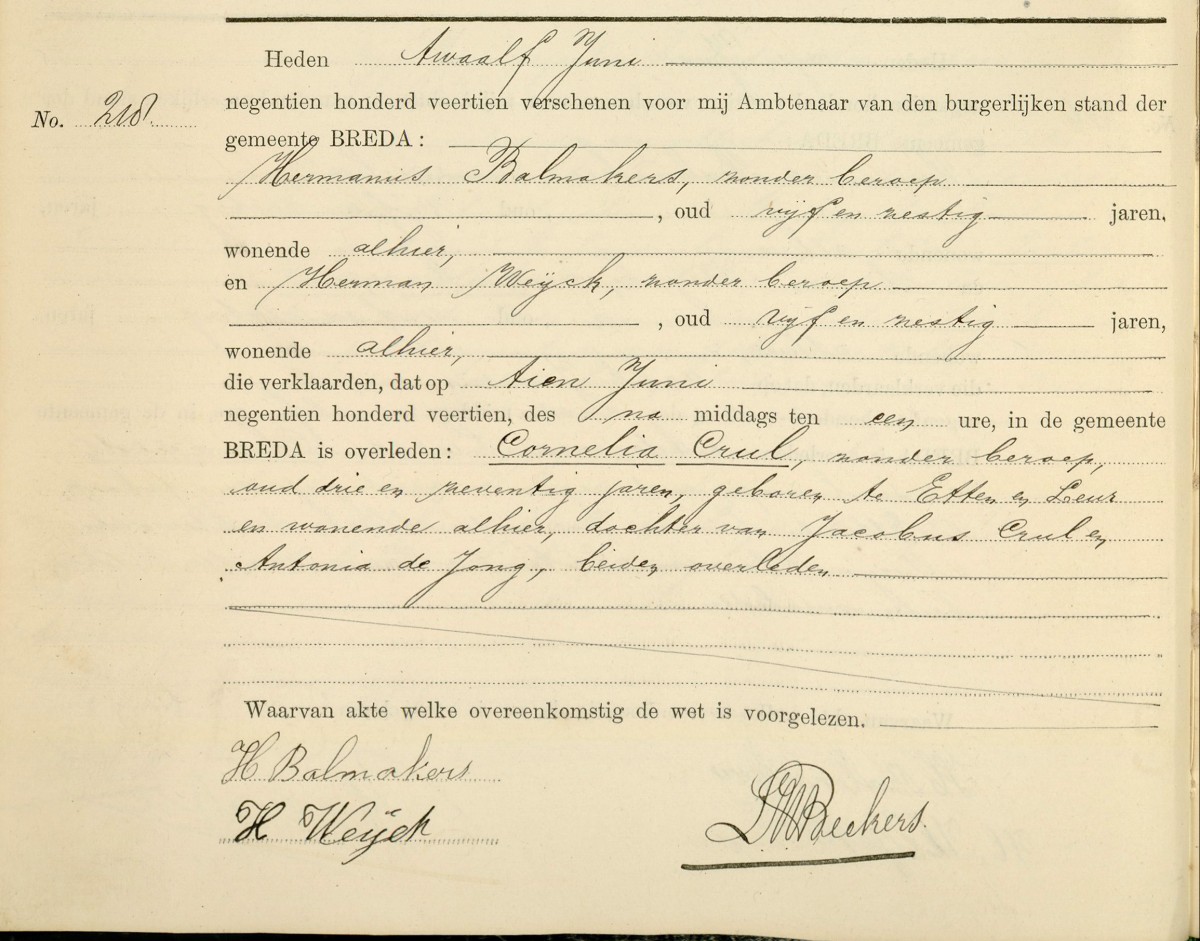 Heden twaalf Juni
No. 218. negentien honderd veertien verschenen voor mij Ambtenaar van den burgerlijken stand der
gemeente BREDA:
Hermanus Balmakers, zonder beroep
, oud vijf en zestig jaren,
wonende alhier,
en Herman Weijck, zonder beroep
, oud vijf en zestig jaren,
wonende alhier,
die verklaarden, dat op tien Juni
negentien honderd veertien, des na middags ten een ure, in de gemeente
BREDA is overleden: Cornelia Crul, zonder beroep,
oud drie en zeventig jaren, geboren te Etten en Leur
en wonende alhier, dochter van Jacobus Crul en
Antonia de Jong, beiden overleden
Waarvan akte welke overeenkomstig de wet is voorgelezen.
H Balmakers
H Weijck
Beckers.